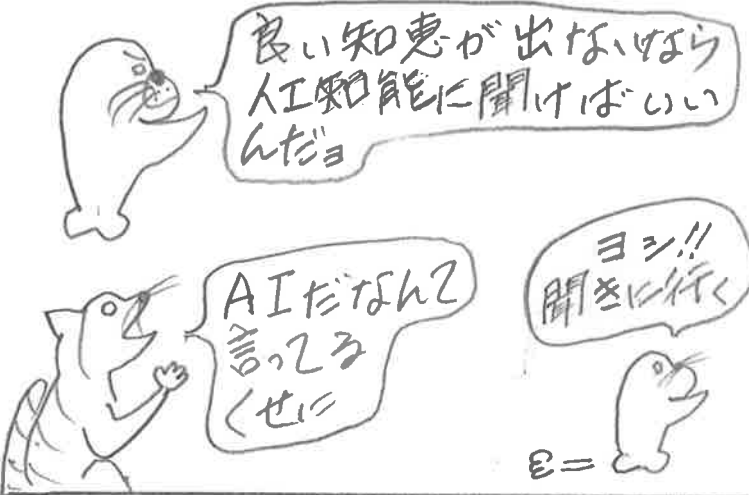 良い知恵が出ないなら
人工知能に聞けばいい
んだヨ
AIだなんて
言ってる
くせに
ヨシ!!
聞きに行く